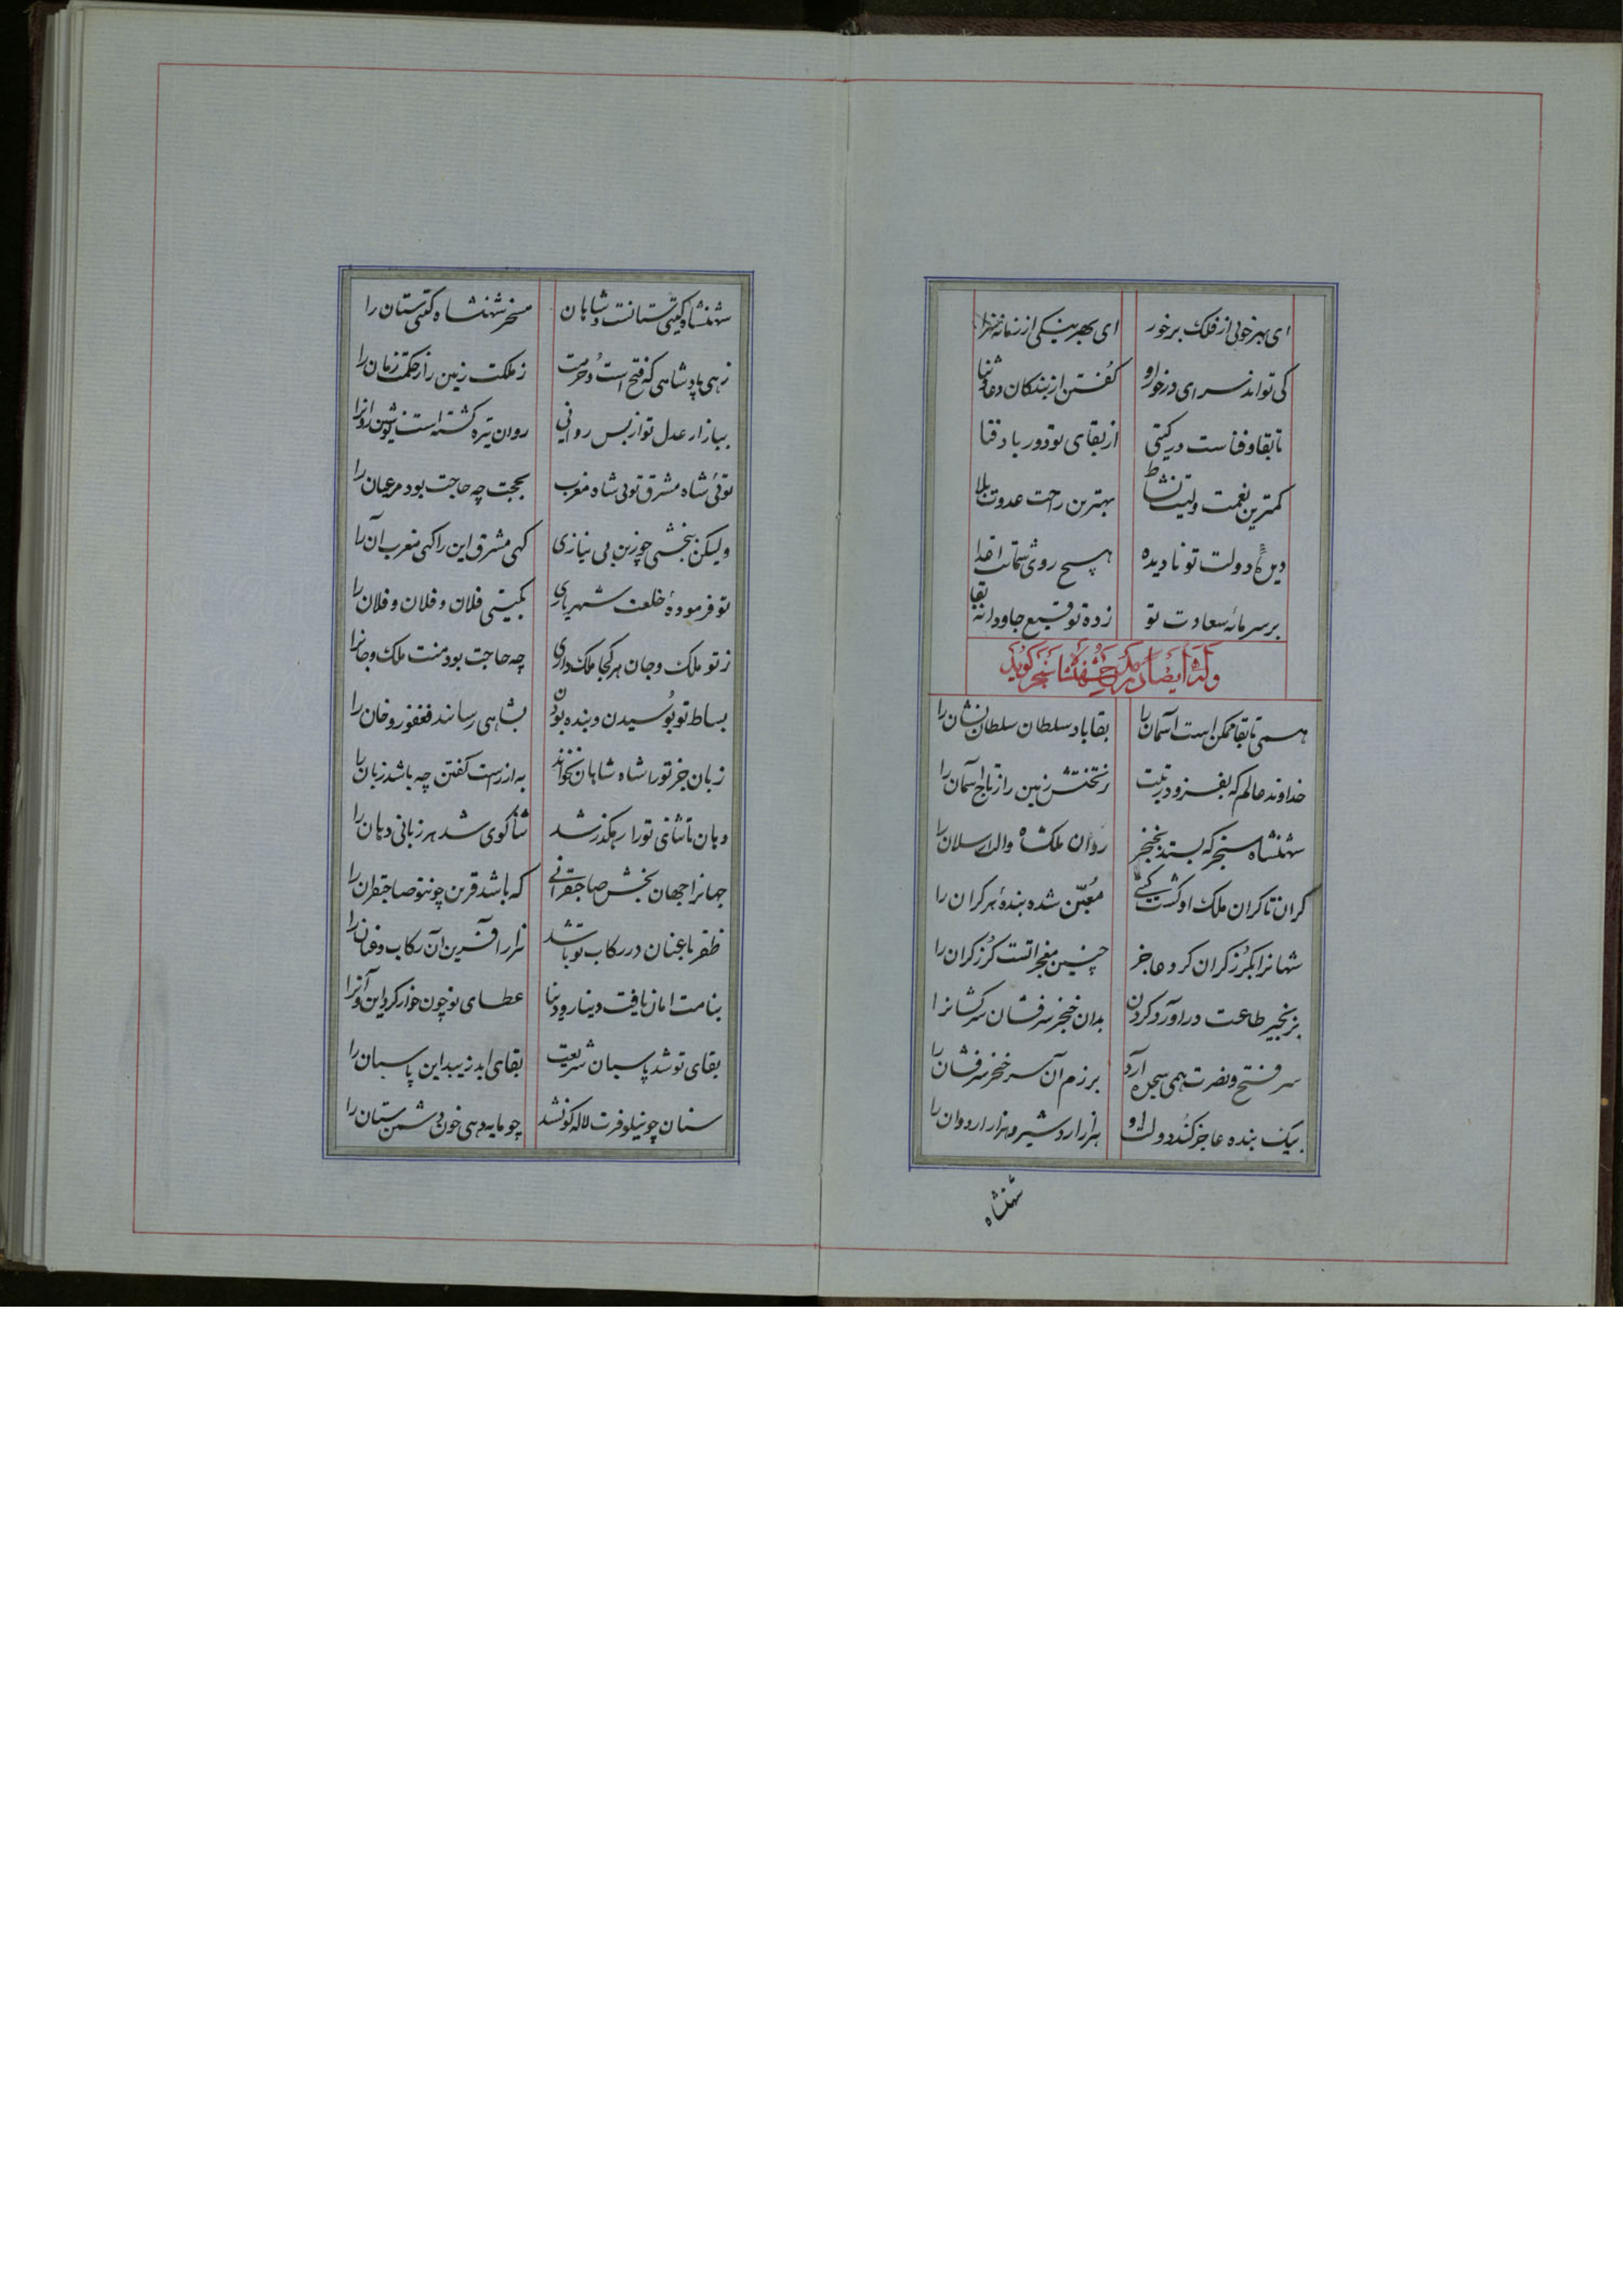 ای بهر خوبی از فلک برخور ای بهر نیکی از زمانه سزا
کی تواند سرای درخور او گفتن از بندگان دعا و ثنا
تا بقا و فناست در گیتی از بقای تو دور باد فنا
کمترین نعمت ولیت نشاط بهترین راحت عدوت بلا
دیده دولت تو نادیده هیچ روی شماتت اعدا
بر سر مائه سعادت تو زده توقیع جاودانه بقا
وله ایضا در مدح شهنشاه سنجر گوید
همی تا بقا ممکن است آسمان را بقا باد سلطان سلطان نشان را
خداوند عالم که بفزود زینت ز تختش زمین را ز تاج آسمان را
شهنشاه سنجر که بستد بخنجر روان ملکشاه والب ارسلان را
کران تا کران ملک او گشت گیتی معین شده بنده هر کران را
شهانرا بگرز گران کرد عاجز چنین معجزاتست گرز گران را
بزنجیر طاعت درآورد گردن بدان خنجر سرفشان سرکشانرا
سر فتح و نصرت همی سجده آرد برزم آن سر خنجر سرفشان را
بیک بنده عاجز کند دولت او هزار اردشیر و هزار اردوان را
شهنشاه
شهنشاه گیتی ستانست و شاهان مسخر شهنشاه گیتی ستان را
زهی پادشاهی که فتح است و حرمت ز ملکت زمین را ز حکمت زمان را
ببازار عدل تو از بس روانی روان تیره گشته است نوشین روانرا
توئی شاه مشرق توئی شاه مغرب بحجت چه حاجت بود مر عیان را
ولیکن ببخشی چو زین بی نیازی گهی مشرق این را گهی مغرب آن را
تو فرموده خلعت شهریاری بگیتی فلان و فلان و فلان را
ز تو ملک و جان هر کجا ملک داری چه حاجت بود منت ملک و جانرا
بساط تو بوسیدن و بنده بودن بشاهی رسانند فغفور و خان را
زبان جز تو را شاه شاهان نخواند به از راست گفتن چه باشد زبان را
دهان تا ثنای تو را رهگذر شد ثناگوی شد هر زبانی دهان را
جهانرا جهان بخش صاحبقرانی که باشد قرین چون تو صاحبقران را
ظفر با عنان در رکاب تو باشد هزار آفرین آن رکاب و عنان را
بنامت امان یافت دینار و دنیا عطای تو چون خوار کرد این و آنرا
بقای تو شد پاسبان شریعت بقای ابد زیبد این پاسبان را
سنان چو نیلوفرت لاله گون شد چو مایه دهی خون دشمن ستان را